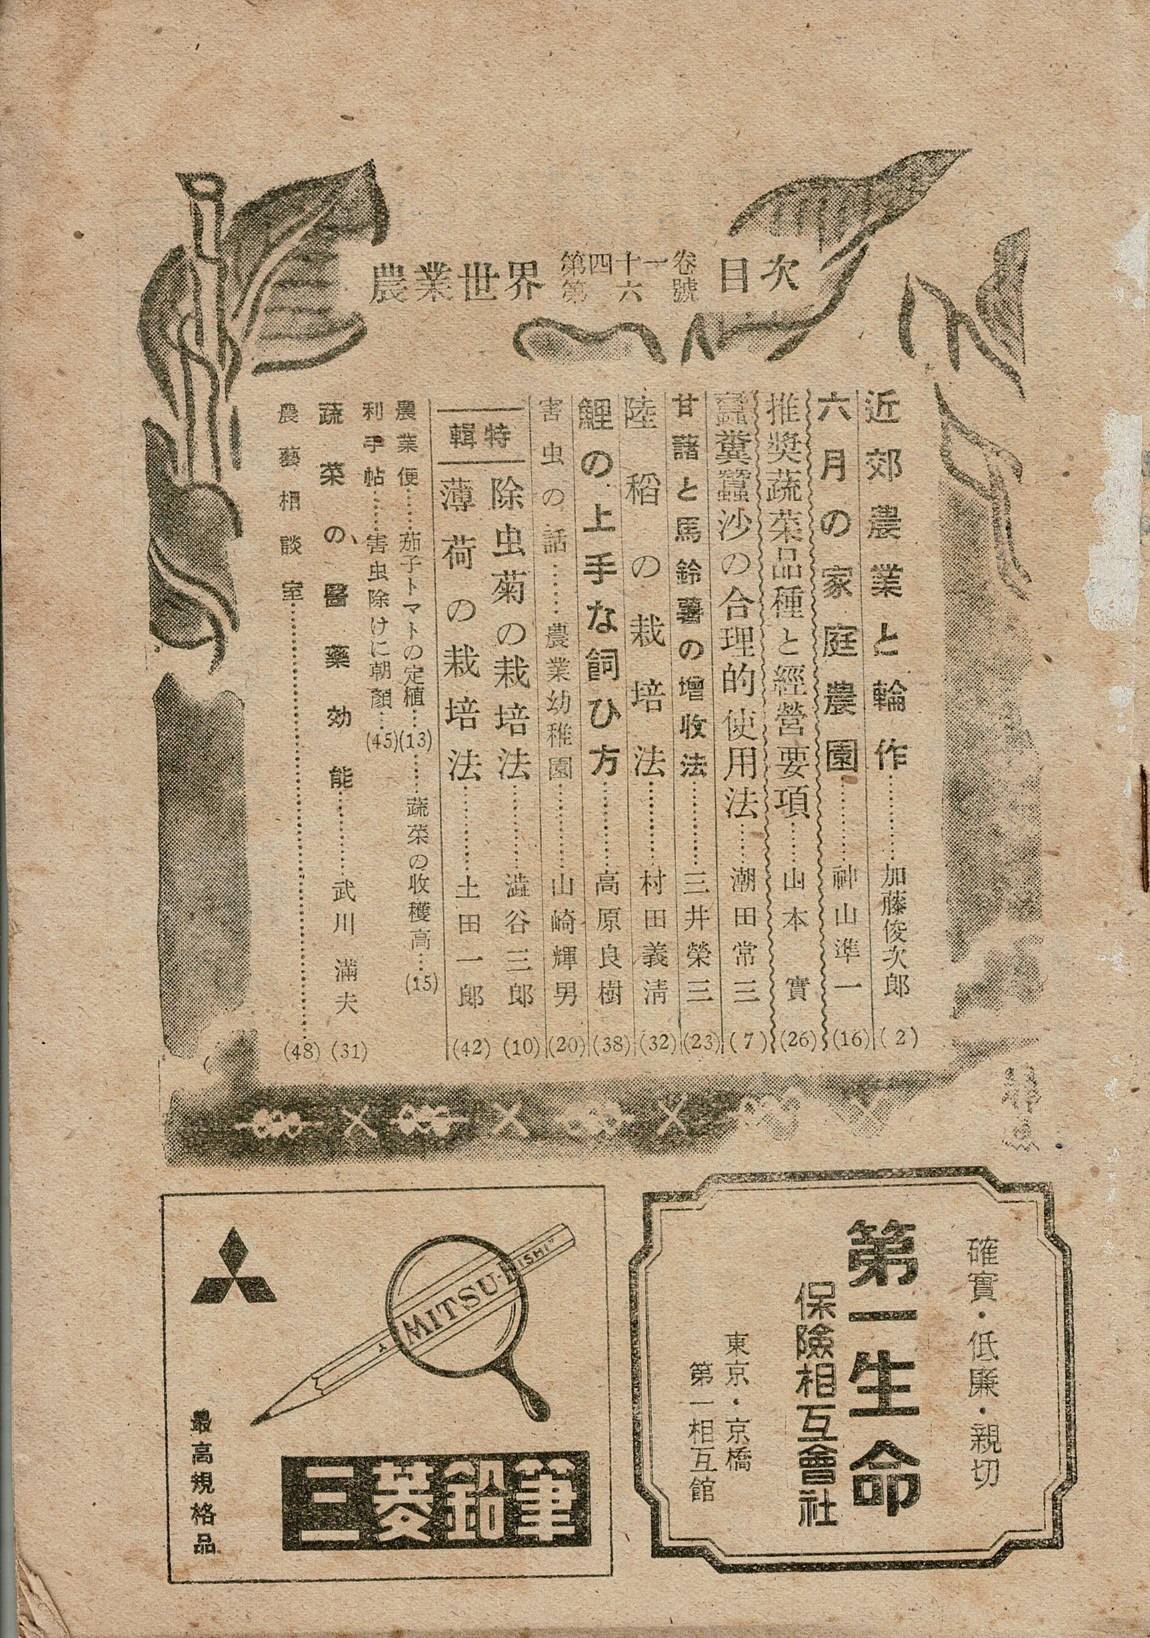 農業世界 第四十一卷 第六號 目次
近郊農業と輪作……加藤俊次郎 (2)
六月の家庭農園……神山準一 (16)
推奬蔬菜品種と經營要項……山本實 (26)
蠶糞蠶沙の合理的使用法……潮田常三 (7)
甘藷と馬鈴薯の增收法……三井榮三 (23)
陸稻の栽培法……村田義淸 (32)
鯉の上手な飼ひ方……高原良樹 (38)
害虫の話……農業幼稚園……山崎輝男 (20)
特輯
除虫菊の栽培法……澁谷三郎 (10)
薄荷の栽培法……土田一郎 (42)
農業便……茄子トマトの定植…(13)……蔬菜の收穫高…(15)
利手帖……害虫除けに朝顏…(45)
蔬菜の醫藥効能……武川滿夫 (31)
農藝相談室…… (48)
確實・低廉・親切
第一生命
保險相互會社
東京・京橋
第一相互館
MITSU-BISHI
最高規格品
三菱鉛筆